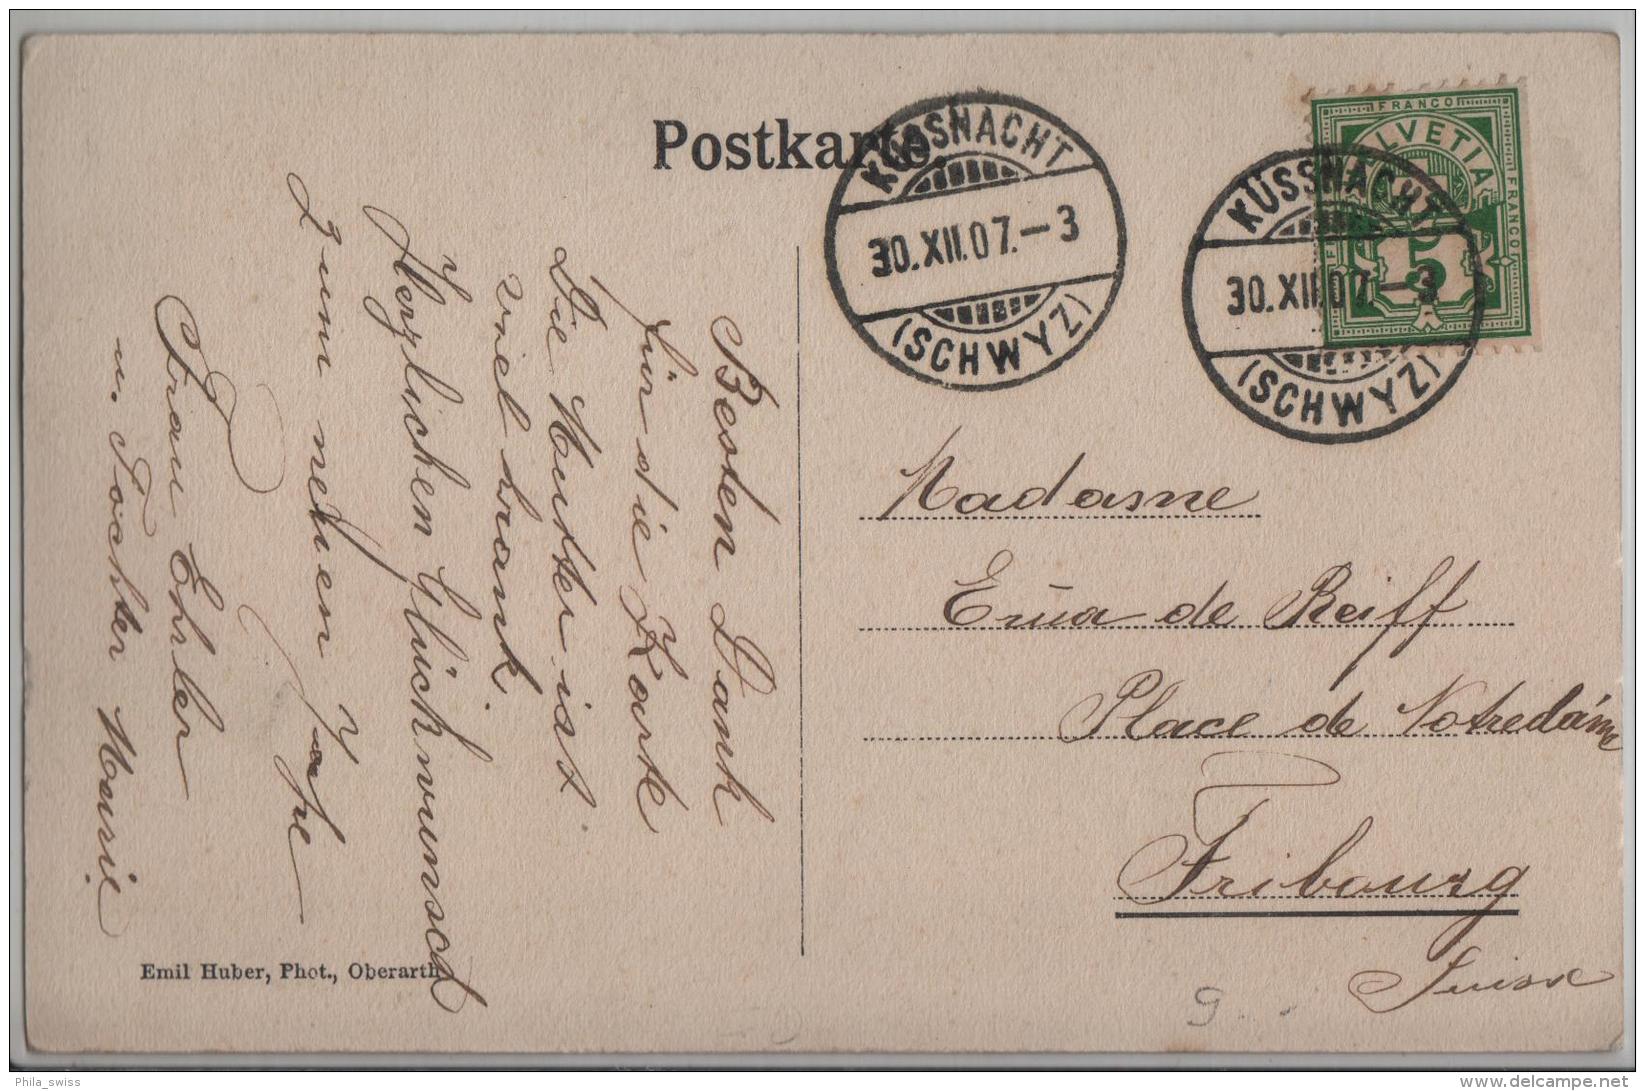 Postkarte.
KÜSSNACHT
30.XII.07.–3
(SCHWYZ)
KÜSSNACHT
30.XII.07.–3
(SCHWYZ)
FRANCO
HELVETIA
FRANCO
5
Besten Dank
für die Karte
Die Mutter ist
viel krank.
Herzlichen Glückwunsch
zum neuen Jahre
Frau Ehrler
u. Tochter Marie
Madame
Emma de Reiff
Place de Notredáme
Fribourg
Suisse
Emil Huber, Phot., Oberarth
9
Phila_swiss
www.delcampe.net